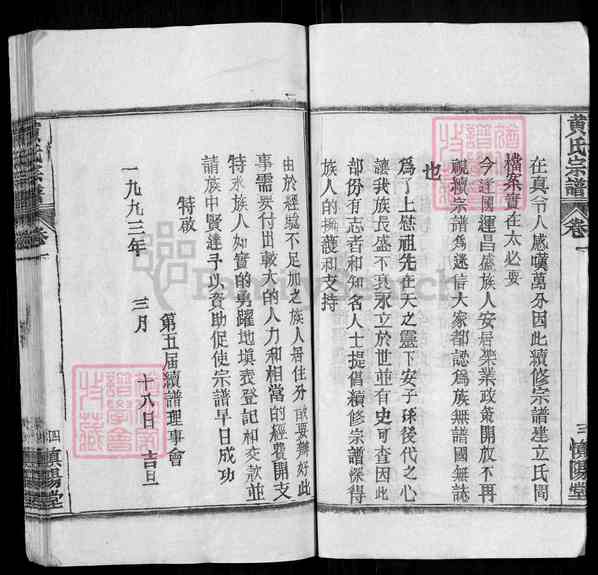 黄氏宗譜
卷一
三
慎陽堂
在真令人感嘆萬分因此續修宗譜建立氏間
檔案實在太必要
今逢國運昌盛族人安居樂業政策開放不再
視續宗譜為迷信大家都認為族無譜國無誌
也
為了上慰祖先在天之靈下安子孫後代之心
讓我族長盛不衰永立於世並有史可查因此
部份有志者和知名人士提倡續修宗譜深得
族人的擁護和支持
由於經驗不足加之族人居住分散要辦好此
事需要付出較大的人力和相當的經費開支
特求族人如實的勇躍地填表登記和交款並
請族中賢達予以資助促使宗譜早日成功
特啟
第五届續譜理事會
一九九三年 三月 十八日 吉旦
卷一
四
慎陽堂
FamilySearch